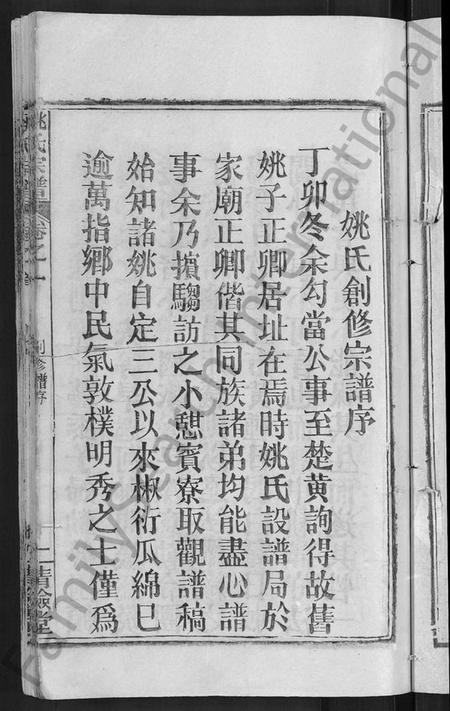 姚氏創修宗譜序
丁卯冬余勾當公事至楚黄詢得故舊
姚子正卿居址在焉時姚氏設譜局於
家廟正卿偕其同族諸弟均能盡心譜
事余乃擯騶訪之小憩賓寮取觀譜稿
始知諸姚自定三公以來椒衍瓜綿已
逾萬指鄉中民氣敦樸明秀之士僅爲
姚氏宗譜 卷之一 創修譜序 一
FamilySearch International